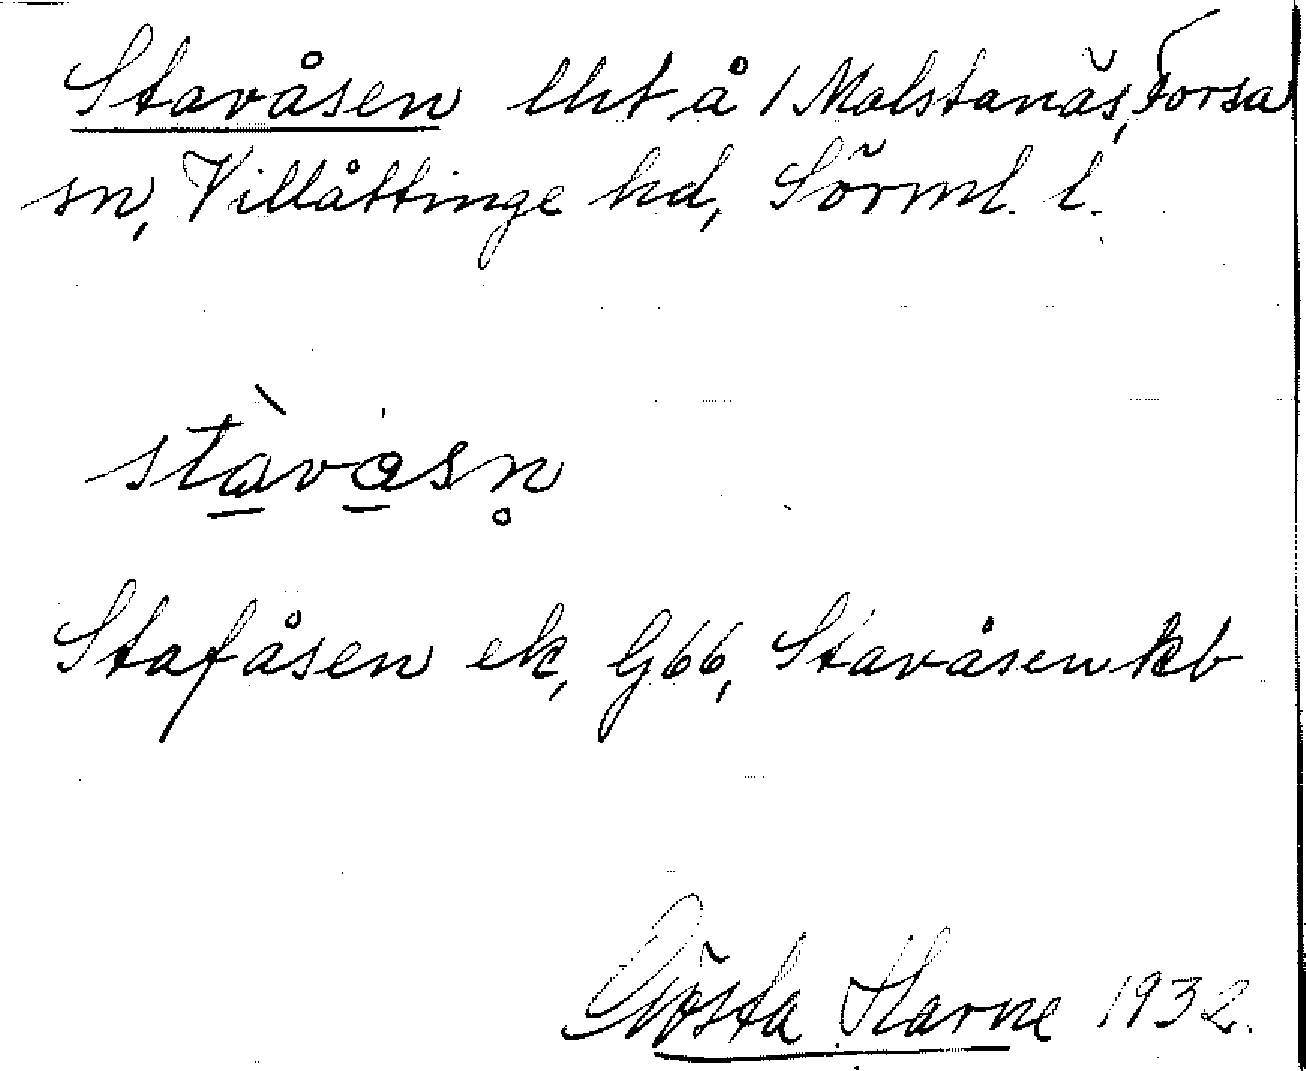 Stavåsen lht å 1 Malstanäs, Forsa
sn, Villåttinge hd, Sörml. l.
stàvåsn̥
Stafåsen ek, G66, Stavåsen kb
Gösta Harne 1932.